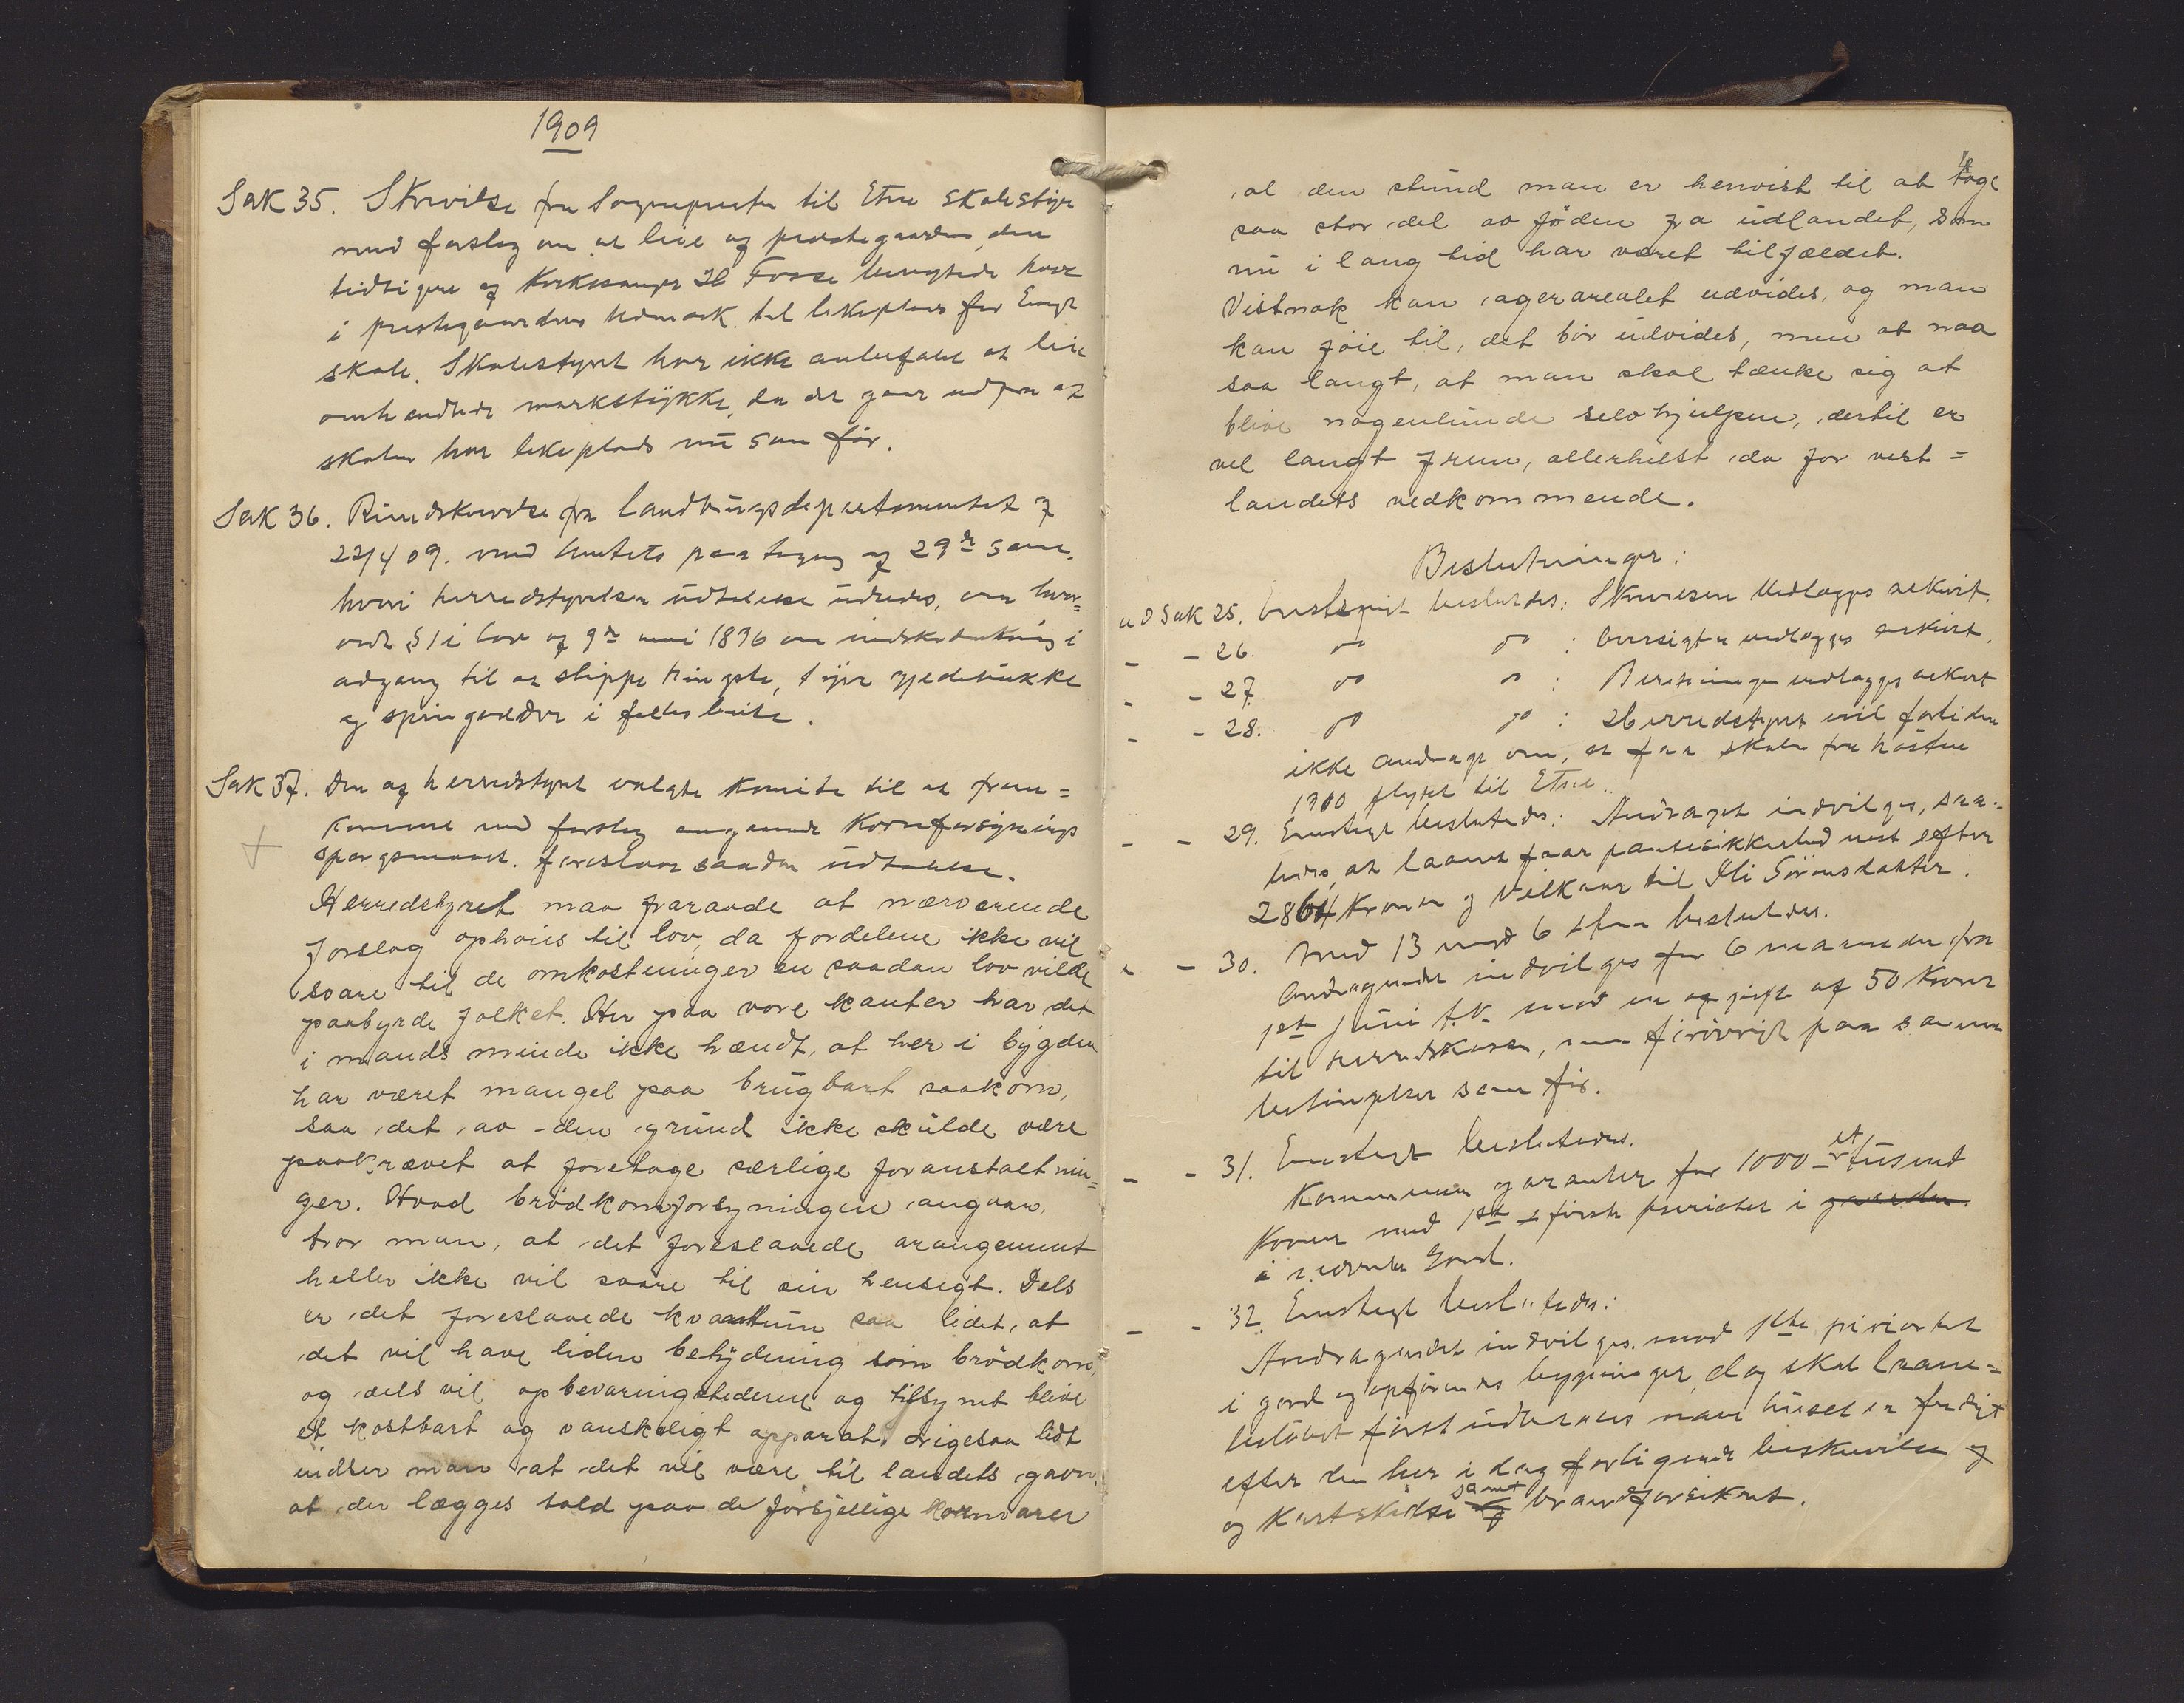 1909
Sak 35. Skrivelse fra Sognepresten til Etne Skolestyre
med forslag om at leie af prestegaarden, den
tidligere af Kirkesanger H Fosse benyttede have
i prestegaardens udmark til lekeplads for Enge
skole. Skolestyret har ikke anbefalet at leie
omhandlede markstykke, da det gaar ud fra at
skolen har lekeplads nu som før.
Sak 36. Rundskrivelse fra Landbrugsdepartementet af
22/4 09. med Amtets paategning af 29de s.m.
hvori herredstyrelsens udtalelse udbedes, om
§ 1 i lov af 9de mai 1896 om indskrænkning i
adgang til at slippe hingste, tyre gjedebukke
og springvædder i fellesbeite.
Sak 37. Den af herredstyret valgte Komite til at frem=
komme med forslag angaaende Kornforsynings
spørgsmaalet. foreslaar saadan udtalelse.
Herredstyret maa fraraade at nærværende
forslag ophøies til lov, da fordelene ikke vil
svare til de omkostninger en saadan lov vilde
paabyrde folket. Her paa vore kanter har det
i mands minde ikke hændt, at her i bygden
har været mangel paa brugbart saakorn,
saa det av den grund ikke skulde være
paakrævet at foretage særlige foranstaltnin=
ger. Hvad brødkornforsyningen angaar,
tror man, at det foreslaaede arangement
heller ikke vil svare til sin hensigt. Dels
er det foreslaaede kvantum saa lidet, at
det vil have liden betydning som brødkorn,
og dels vil opbevaringstederne og tilsynet blive
et kostbart og vanskeligt apparat. Ligesaa lidt
indser man at det vil være til landets gavn,
at der lægges told paa de forsjellige kornvarer
al den stund man er henvist til at tage
saa stor del av føden fra udlandet, som
nu i lang tid har været tilfældet.
Vistnok kan agerarealet udvides, og man
kan føie til, det bør udvides, men at naa
saa langt, at man skal tænke sig at
blive nogenlunde selvhjulpen, dertil er
vel langt frem, allerhelst da for vest=
landets vedkommende.
Beslutninger:
ad Sak 25. Enstemigt besluttedes: Skrivelsen vedlægges arkivet.
- - 26. do do : Oversigten vedlægges arkivet.
- - 27. do do : Beretningen vedlægges arkivet
- - 28. do do : Herredstyret vil fortiden
ikke andrage om, at faa skolen fra høsten
1910 flyttet til Etne.
- - 29. Enstemigt besluttedes: Andraget indvilges, saa=
ledes, at laanet faar pantesikkerhed nest efter
2864 Kroner og Vilkaar til Ili Sørensdatter.
- - 30. Med 13 mod 6 stemmer besluttedes.
Andragendet indvilges for 6 maaneder fra
1st Juni d.a. mod en afgift af 50 Kroner
til herredskassen, men forøvrigt paa samme
betingelser som før.
- - 31. Enstemigt besluttedes.
Kommunen garanterer for 1000 - et tusend
Kroner med 1st første prioritet i gaarden.
i nævnte jord.
- - 32. Enstemigt besluttedes:
Andragendet indvilges, mod 1ste prioritet
i jord og opførendes bygninger, dog skal laane=
beløbet først udbetales naar huset er ferdigt
efter den her i dag forliggende beskrivelse og
og Kartskidse samt brandforsikret.